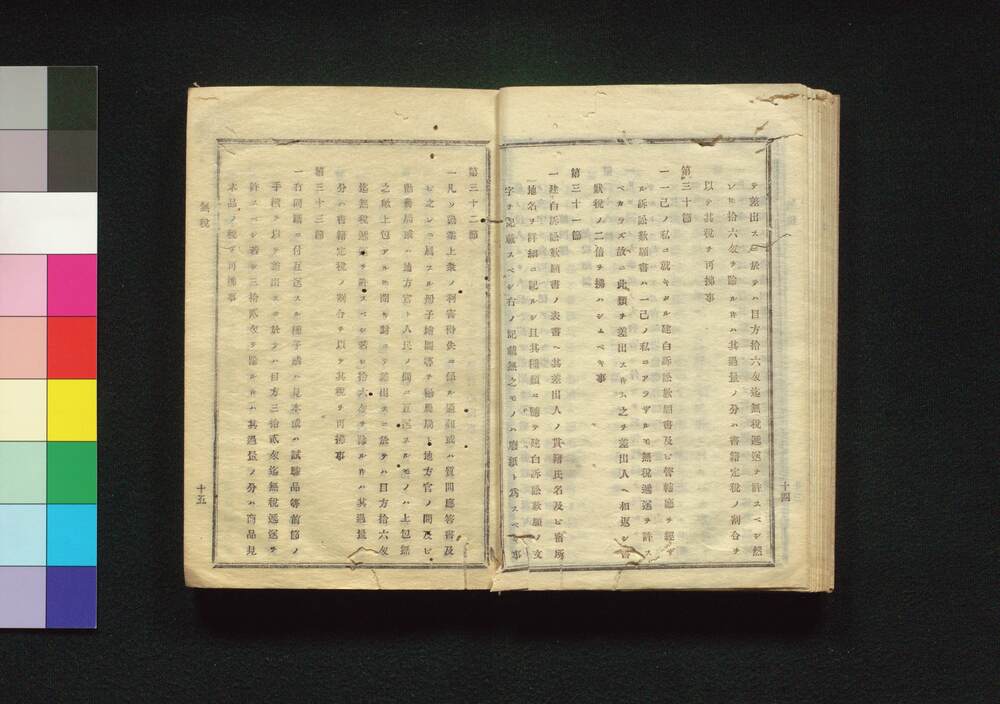 テ差出スニ於テハ目方拾六匁迄無税遞送ヲ許スベシ然
ンヒ拾六匁ヲ除ルキハ其過量ノ分ハ書籍定税ノ割合ヲ
以テ其税ヲ再拂事
第三十節
一一己ノ私ニ就キタル建白訴訟歎願書及ビ管轄廳ヲ經ザ
ル訴訟歎願書ハ一己ノ私ニアラザルモ無税遞送ヲ許ス
ベカラズ故ニ此類ヲ差出スキハ之ヲ差出人ヘ相返シ書
狀税ノ二倍ヲ拂ハシムベキ事
第三十一節
一建白訴訟歎願書ノ表書ヘ其差出人ノ貫籍氏名及ビ宿所
地名ヲ詳細ニ記ルシ且其種類ニ隨テ建白訴訟歎願ノ文
字ヲ記載スベシ右ノ記載無之モノハ廢紙ト爲スベキ事
十四
第三十二節
一凡ソ農業上衆ノ利害得失ニ係ル通知或ハ質問應答書及
ビ之レニ屬スル冊子繪圖等ヲ勸農局ト地方官ノ間及ビ
勸農局或ハ地方官ト人民ノ間ニ互送スルモノハ上包無
之歟上包アルモ開キ封ニテ差出スニ於テハ目方拾六匁
迄無税遞送ヲ許スベシ若シ拾六匁ヲ除ルキハ其過量ノ
分ハ書籍定税ノ割合ヲ以テ其税ヲ再拂事
第三十三節
一右同際ニ付互送スル種子或ハ見本或ハ試驗品等前節ノ
手續ヲ以テ差出スニ於テハ目方三拾貳匁迄無税遞送ヲ
許スベシ若シ三拾貳匁ヲ除ルキハ其過量ノ分ハ商品見
本品ノ税ヲ再拂事
無税
十五